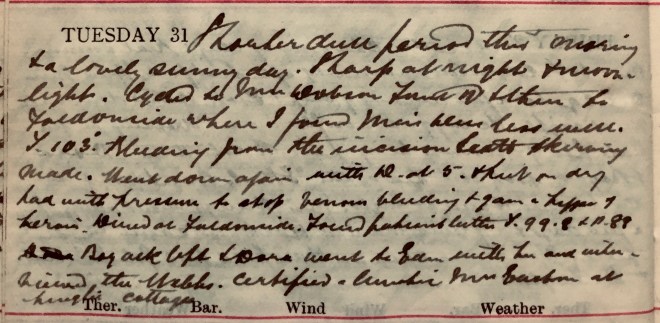 TUESDAY 31 Shorter dull period this morning
& a lovely sunny day. Sharp at night & moon-
light. Cycled to Mrs Dobson & then to
Faldonside where I found Miss less well.
T. 103°. Bleeding from the incision
made. Went down again with D. at 5. & put on dry
pad with pressure to stop venous bleeding & gave a hypo of
heroin. Dined at Faldonside. Found patient better T. 99.8 & P. 88
Bag ack left & Dora went to Edin with her and inter-
viewed the Webbs. Certified a lunatic Mrs at
cottages
Ther. Bar. Wind Weather